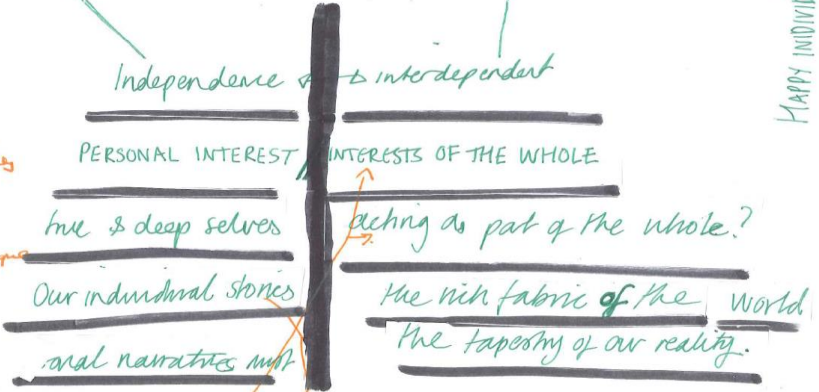 Independence & → interdependent
PERSONAL INTEREST / INTERESTS OF THE WHOLE
true & deep selves
acting as part of the whole?
Our individual stories
the rich fabric of the world
onal narratives must
the tapestry of our reality.
HAPPY INIDIVID